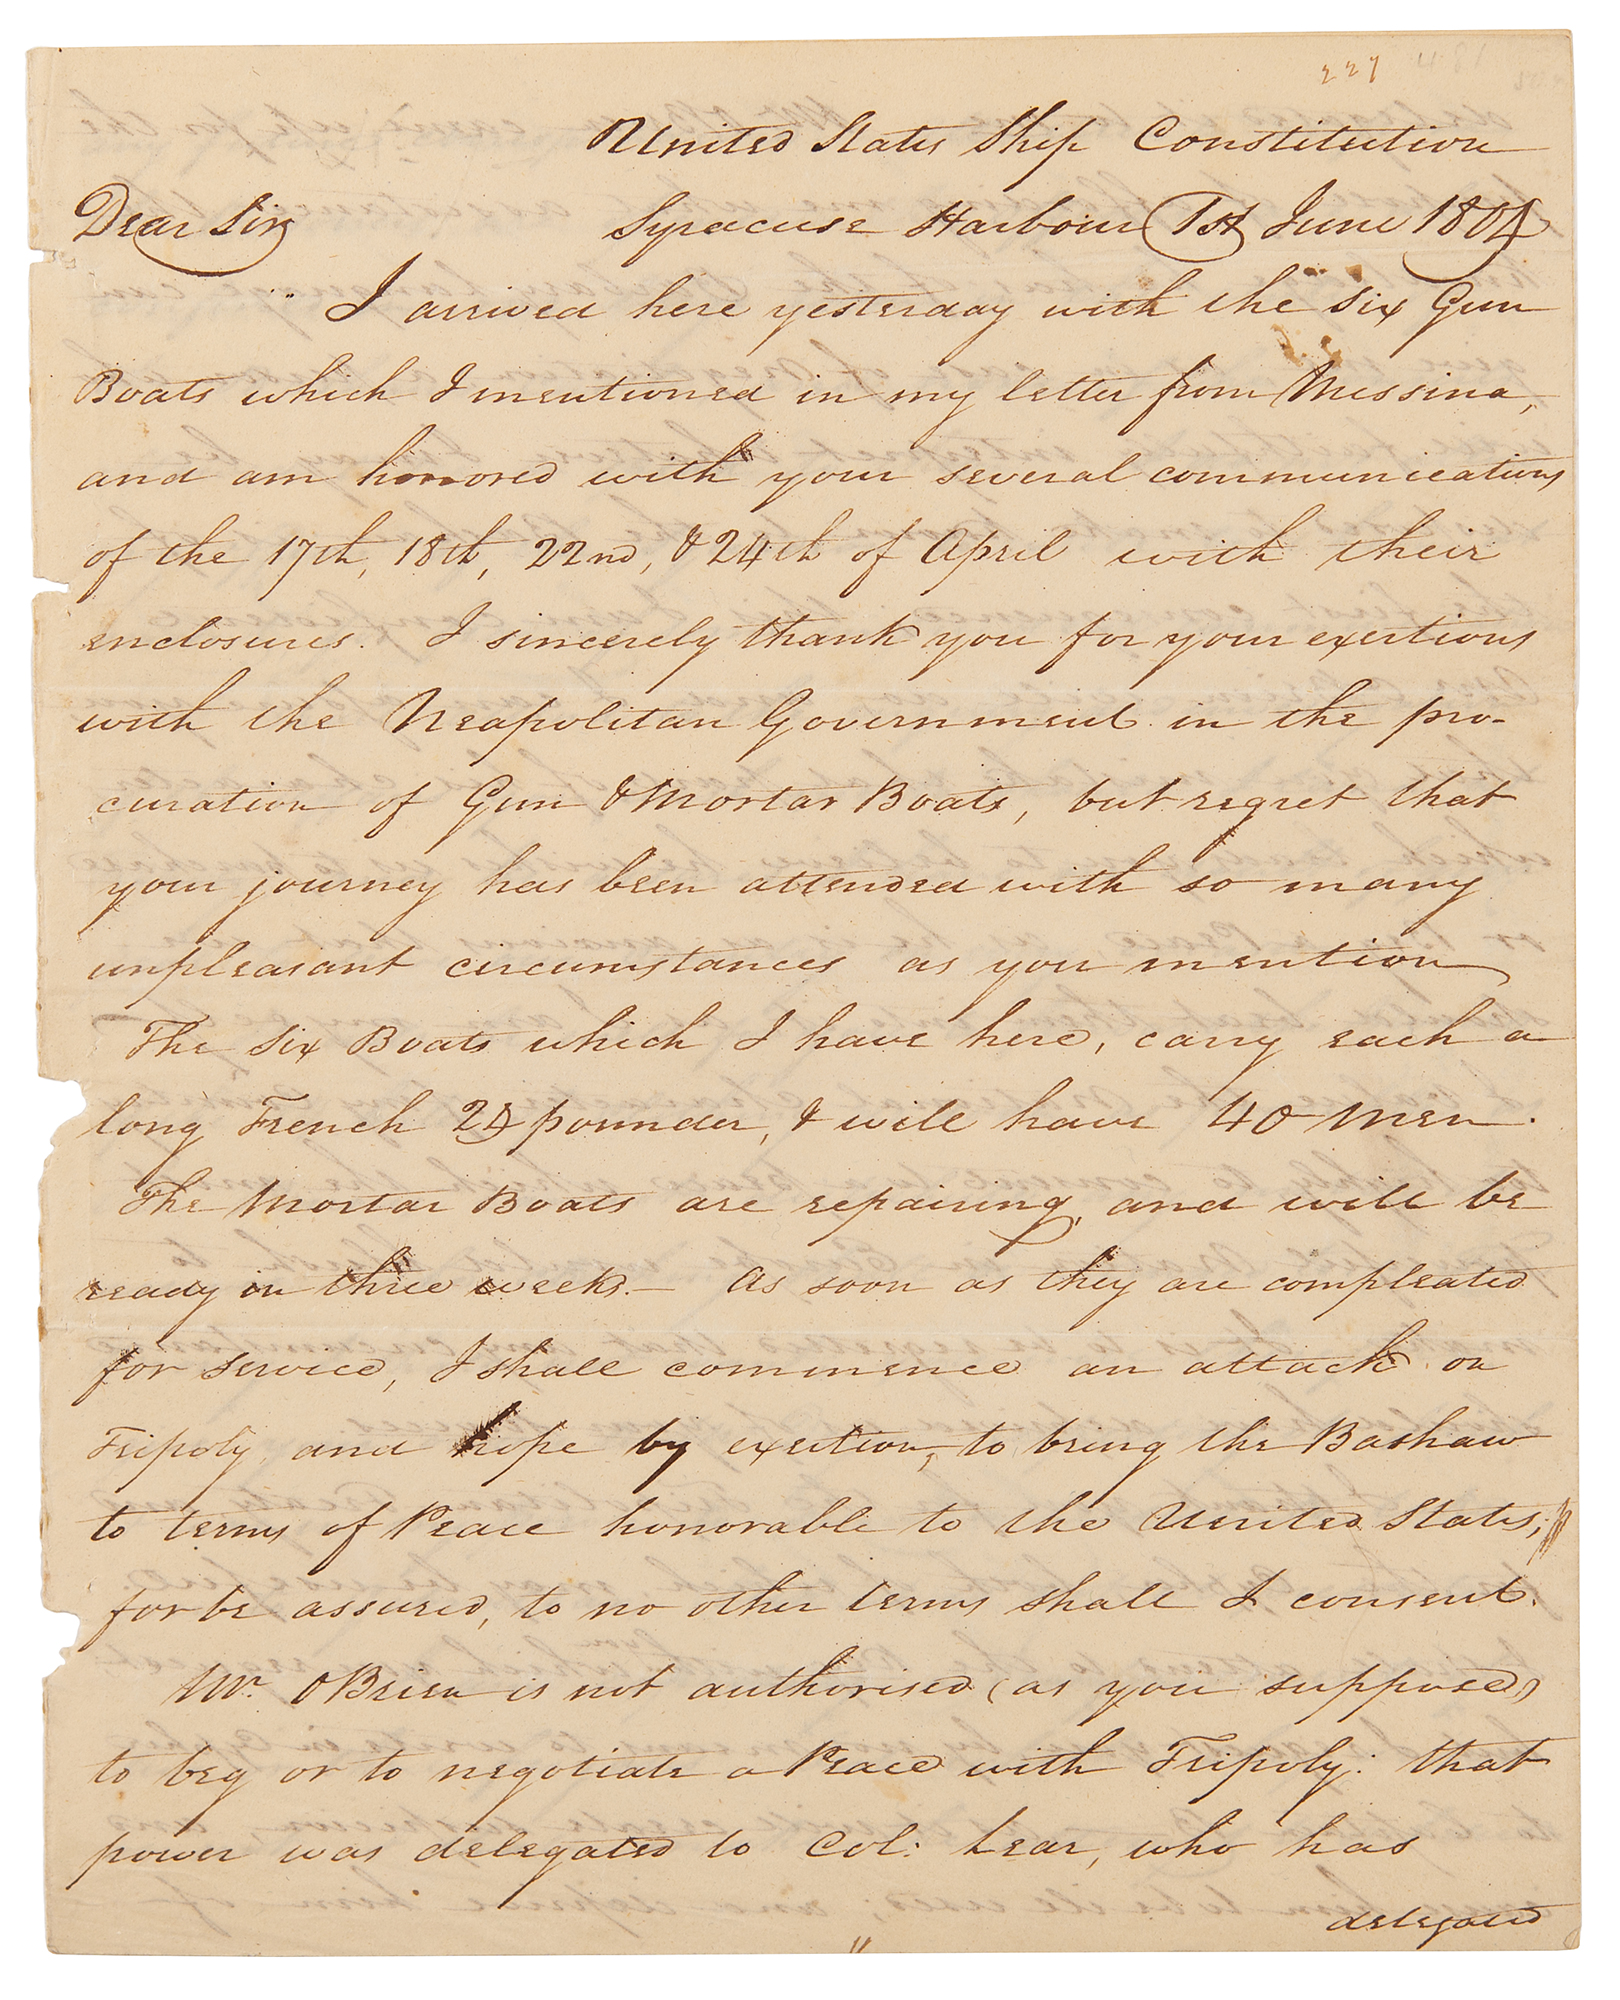 227 481
United States Ship Constitution
Dear Sir Syracuse Harbour 1st June 1804
I arrived here yesterday with the six Gun
Boats which I mentioned in my letter from Messina,
and am honored with your several communications
of the 17th, 18th, 22nd, & 24th of April with their
enclosures. I sincerely thank you for your exertions
with the Neapolitan Government in the pro-
curation of Gun & Mortar Boats, but regret that
your journey has been attended with so many
unpleasant circumstances as you mention
The Six Boats which I have here, carry each a
long French 24 pounder, & will have 40 Men.
The Mortar Boats are repairing, and will be
ready in three weeks. — As soon as they are compleated
for service, I shall commence an attack on
Tripoly, and hope by exertion, to bring the Bashaw
to terms of Peace honorable to the United States;
for be assured, to no other terms shall I consent.
Mr. OBrien is not authorised (as you supposed)
to beg or to negotiate a Peace with Tripoly: that
power was delegated to Col: Lear, who has
delegated